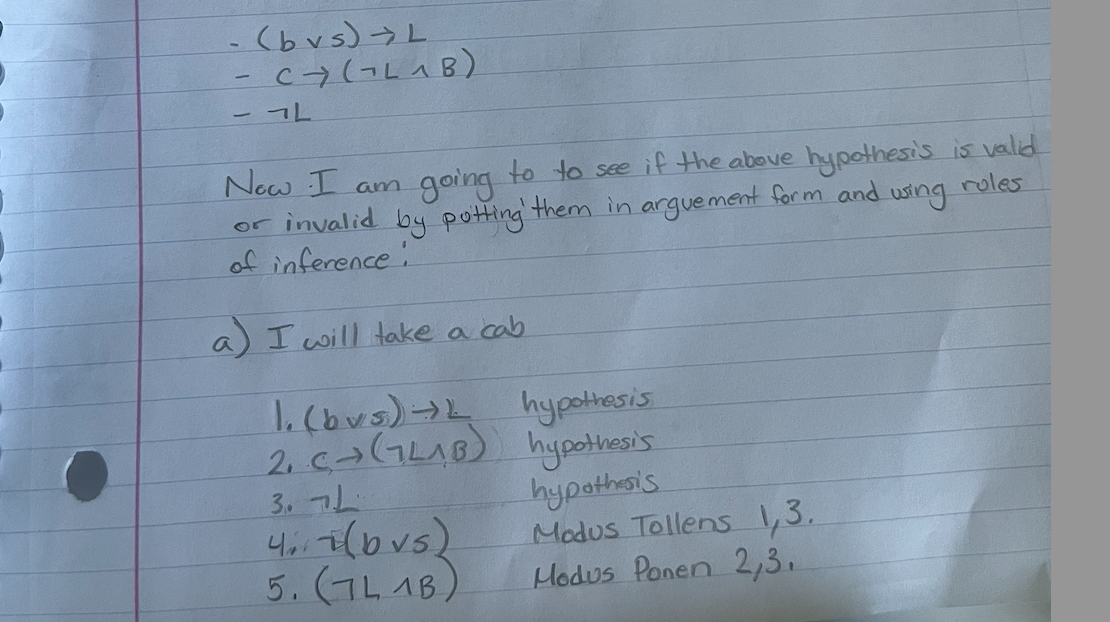 - (b ∨ s) → L
- C → (¬L ∧ B)
- ¬L
Now I am going to to see if the above hypothesis is valid
or invalid by putting them in arguement form and using roles
of inference:
a) I will take a cab
1. (b ∨ s) → L hypothesis
2. C → (¬L ∧ B) hypothesis
3. ¬L hypothesis
4. ¬(b ∨ s) Modus Tollens 1,3.
5. (¬L ∧ B) Modus Ponen 2,3.